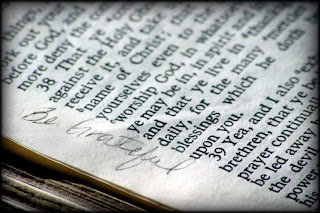 things
ork out your
before God and
more deny the
38 That ye
against the Holy
receive it, and
name of Christ; that
yourselves even to
worship God, in
ye may be in, in spirit and
and that ye live in
daily, for the many
blessings which he doth
upon you.
39 Yea, and I also
brethren, that ye
prayer continually
be led away
the
power
Be Grateful